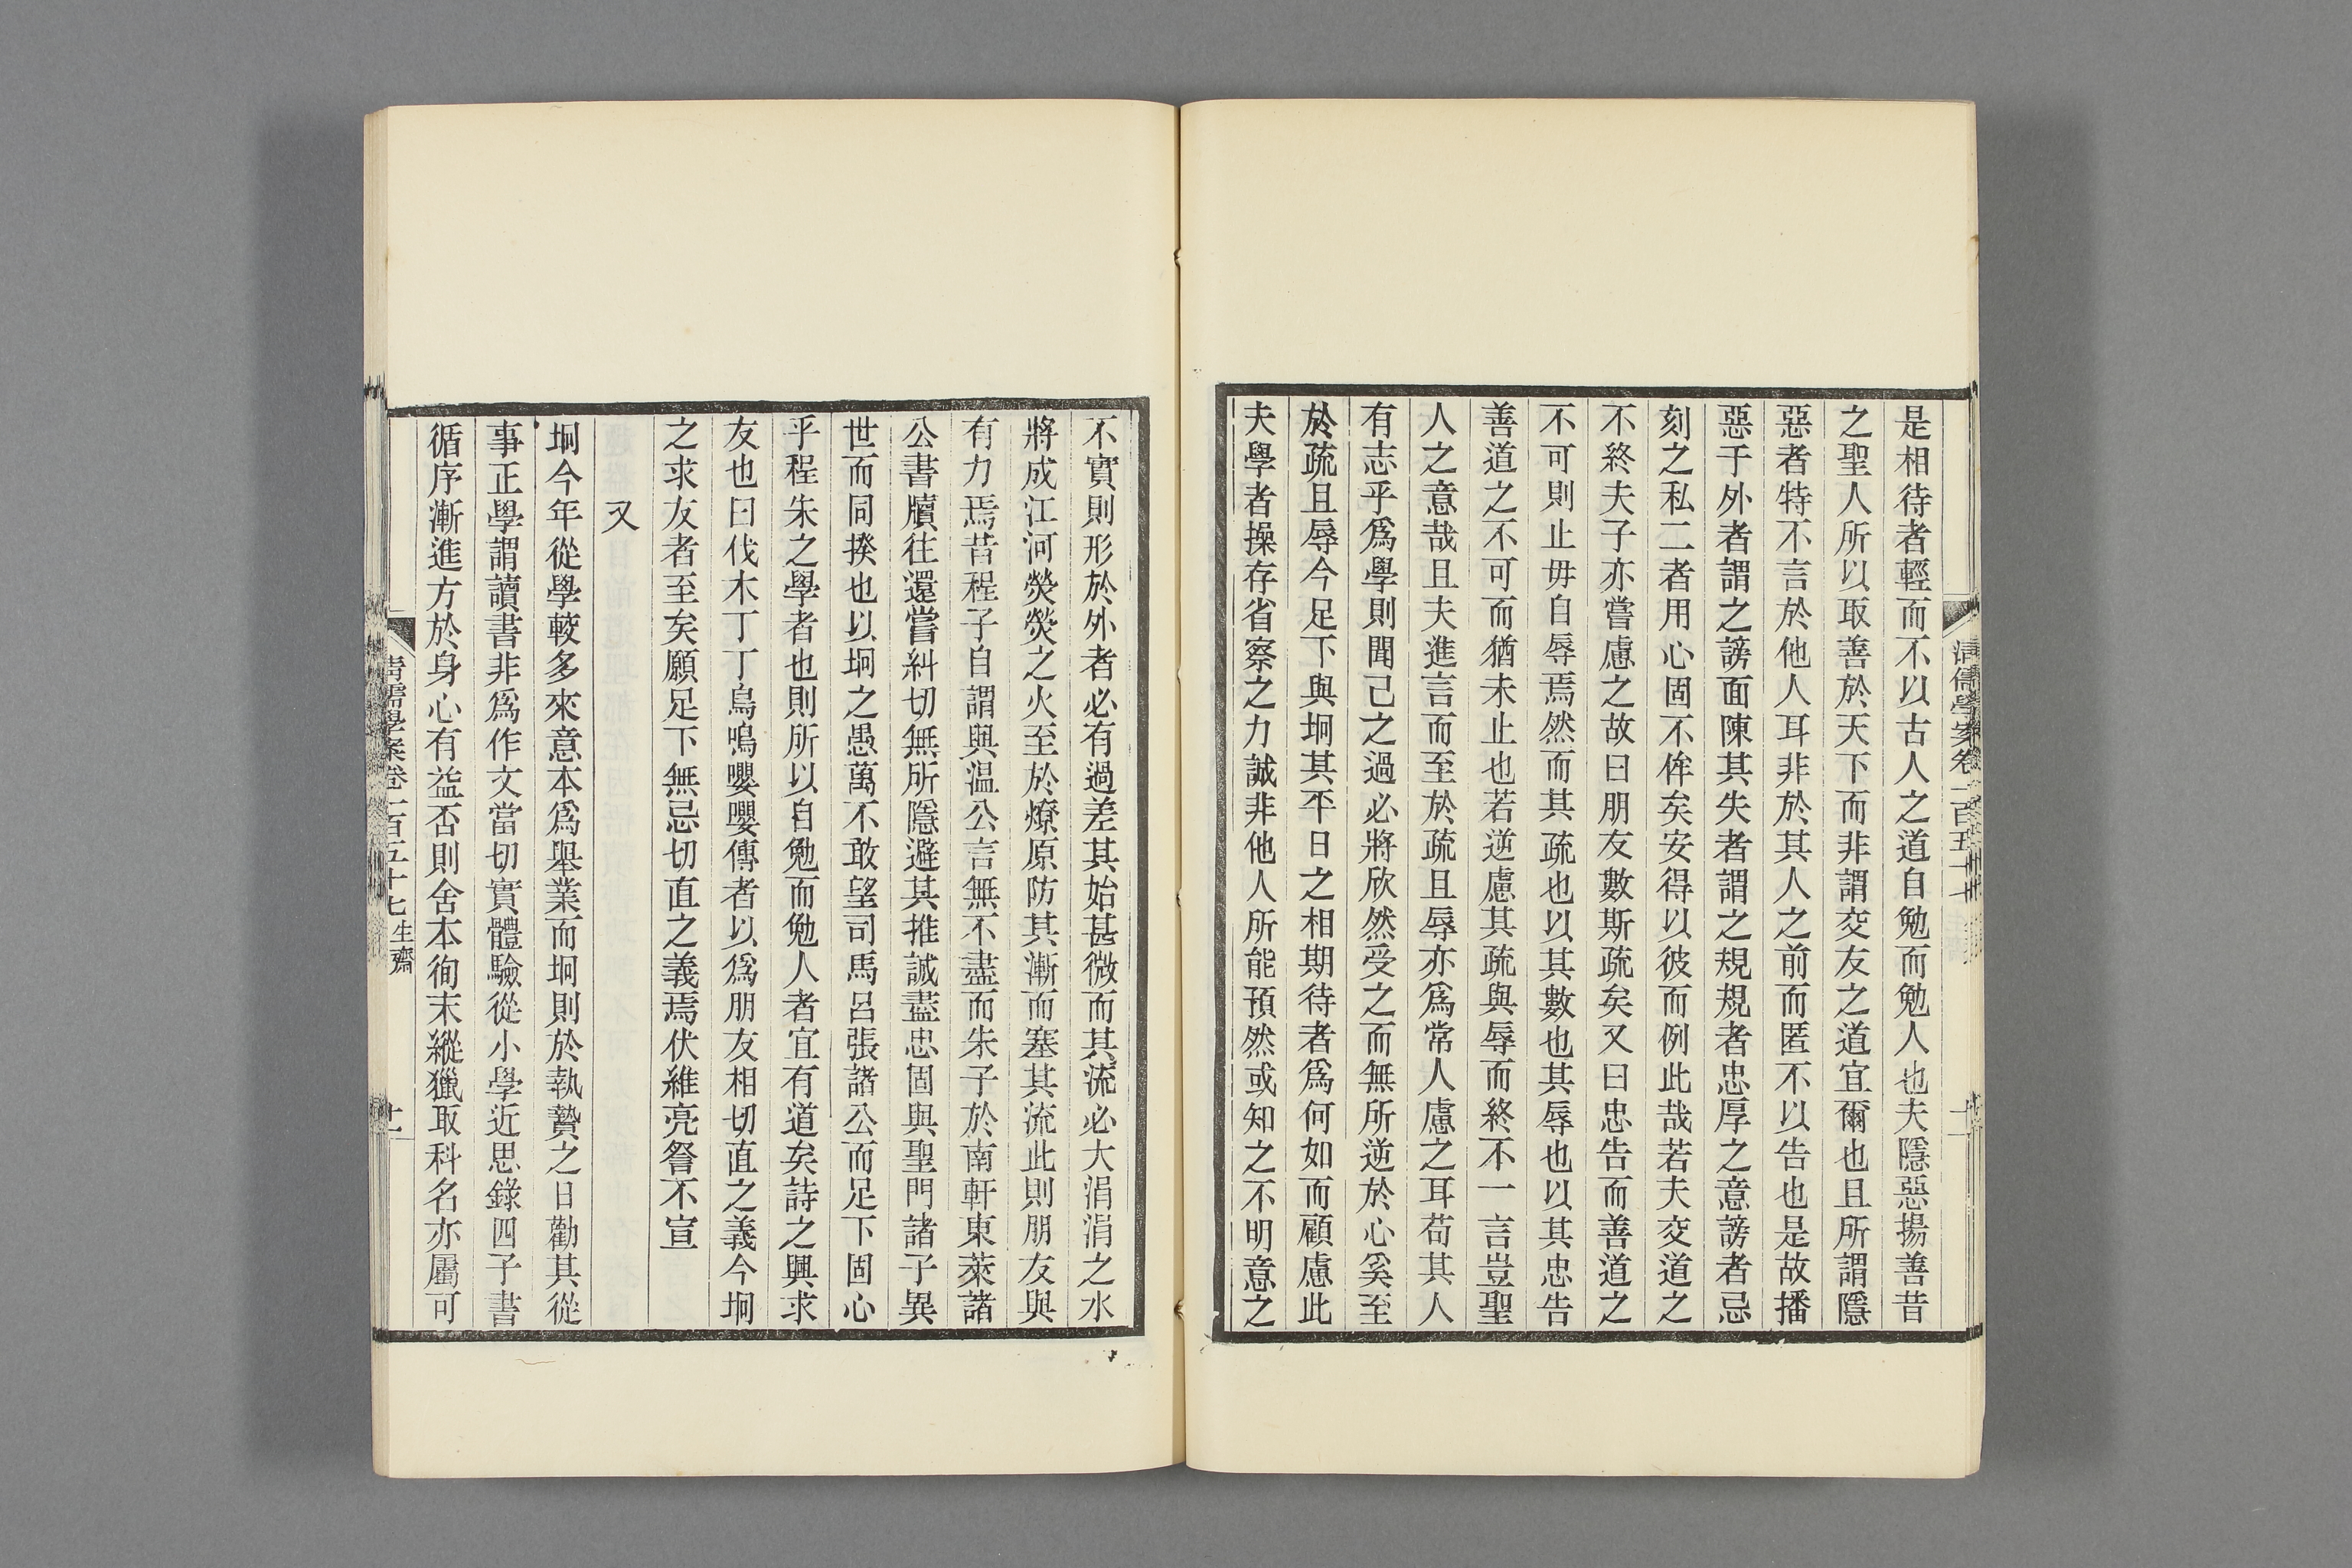 是相待者輕而不以古人之道自勉而勉人也夫隱惡揚善昔
之聖人所以取善於天下而非謂交友之道宜爾也且所謂隱
惡者特不言於他人耳非於其人之前而匿不以告也是故播
惡于外者謂之謗面陳其失者謂之規規者忠厚之意謗者忌
刻之私二者用心固不侔矣安得以彼而例此哉若夫交道之
不終夫子亦嘗慮之故曰朋友數斯疏矣又曰忠告而善道之
不可則止毋自辱焉然而其疏也以其數也其辱也以其忠告
善道之不可而猶未止也若逆慮其疏與辱而終不一言豈聖
人之意哉且夫進言而至於疏且辱亦爲常人慮之耳苟其人
有志乎爲學則聞己之過必將欣然受之而無所逆於心奚至
於疏且辱今足下與坰其平日之相期待者爲何如而顧慮此
夫學者操存省察之力誠非他人所能預然或知之不明意之
不實則形於外者必有過差其始甚微而其流必大涓涓之水
將成江河熒熒之火至於燎原防其漸而塞其流此則朋友與
有力焉昔程子自謂與温公言無不盡而朱子於南軒東萊諸
公書牘往還嘗糾切無所隱避其推誠盡忠固與聖門諸子異
世而同揆也以坰之愚萬不敢望司馬呂張諸公而足下固心
乎程朱之學者也則所以自勉而勉人者宜有道矣詩之興求
友也曰伐木丁丁鳥鳴嚶嚶傳者以爲朋友相切直之義今坰
之求友者至矣願足下無忌切直之義焉伏維亮詧不宣
又
坰今年從學較多來意本爲舉業而坰則於執贄之日勸其從
事正學謂讀書非爲作文當切實體驗從小學近思錄四子書
循序漸進方於身心有益否則舍本徇末縱獵取科名亦屬可
清儒學案卷一百五十七 生齋 十一